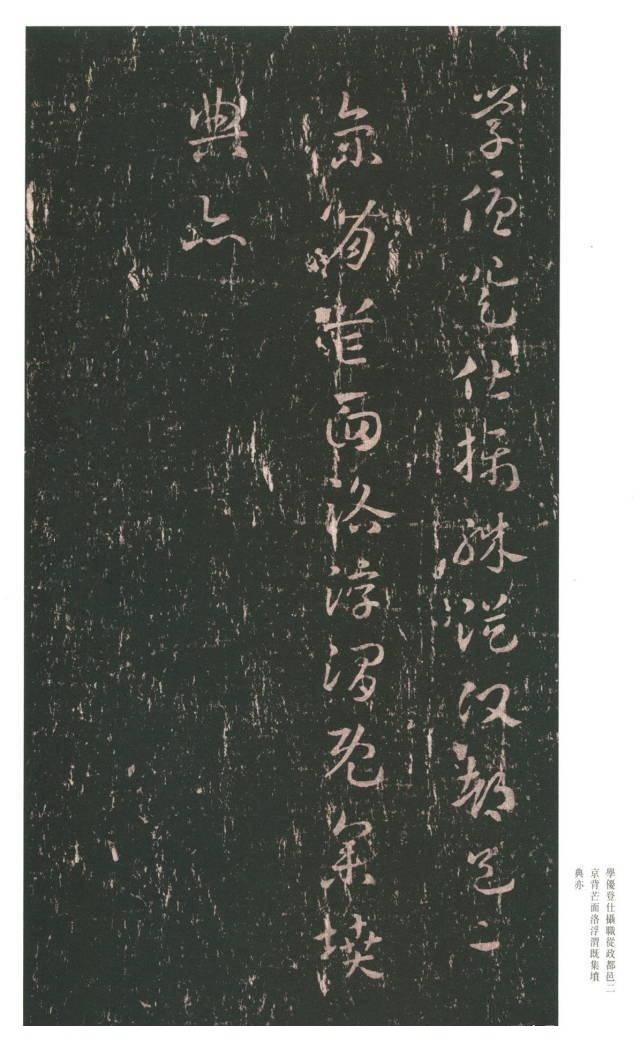 學優登仕攝職從政都邑二
京背芒面洛浮渭既集墳
典亦
學優登仕攝職從政都邑二
京背芒面洛浮渭既集墳
典亦